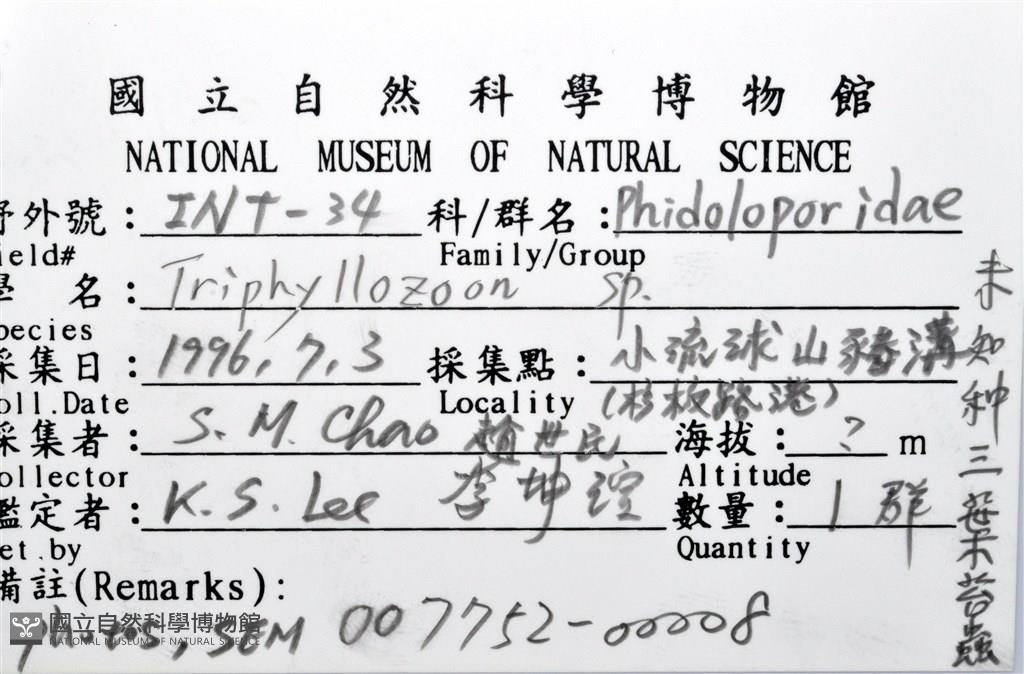 國立自然科學博物館
NATIONAL MUSEUM OF NATURAL SCIENCE
野外號：INT-34 科/群名：Phidoloporidae
ield# Family/Group
學 名：Triphyllozoon sp.
pecies
採集日：1996.7.3 採集點：小流球山豬溝
oll.Date Locality (杉板路港)
採集者：S.M. Chao 趙世民 海拔：? m
ollector Altitude
鑑定者：K.S. Lee 李坤瑄 數量：1群
et.by Quantity
備註(Remarks):
photos, SEM 007752-00008
未知种三葉苔蟲
國立自然科學博物館
NATIONAL MUSEUM OF NATURAL SCIENCE